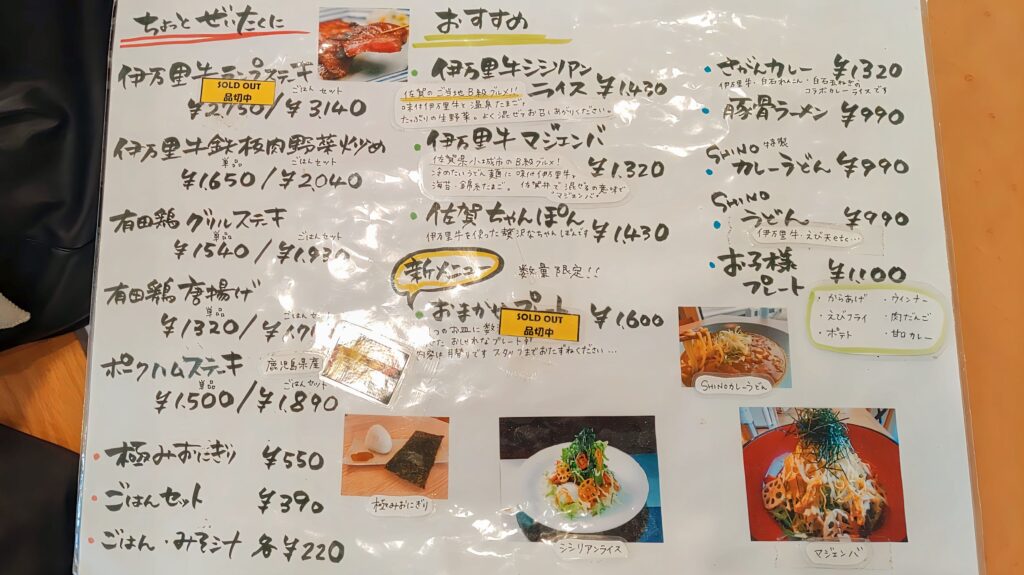 ちょっと ぜいたくに
伊万里牛ランプステーキ
SOLD OUT
品切中
ごはんセット
¥2,750/¥3,140
伊万里牛鉄板肉野菜炒め
単品 ごはんセット
¥1,650/¥2,040
有田鶏 グリルステーキ
単品 ごはんセット
¥1540/¥1,930
有田鶏 唐揚げ
単品 ごはんセット
¥1320/¥1,71
ポークハムステーキ
鹿児島県産
単品 ごはんセット
¥1,500/¥1,890
極みおにぎり ¥550
ごはんセット ¥390
ごはん・みそ汁 各¥220
おすすめ
伊万里牛シシリアン
ライス ¥1,430
佐賀のご当地B級グルメ!!
味付伊万里牛と温泉たまご!
たっぷりの生野菜。よく混ぜてお召しあがりください。
伊万里牛 マジェンバ
¥1,320
佐賀県小城市のB級グルメ!
冷めたいうどん麺に味付伊万里牛。
海苔・錦糸たまご。佐賀弁で混ぜるの意味で
"マジェンバ"
佐賀ちゃんぽん
¥1,430
伊万里牛を使った贅沢なちゃんぽんです
新メニュー 数量限定!!
おまかせプレート
SOLD OUT
品切中
¥1,600
つのお皿に数
おしゃれなプレート
内容は月替りです スタッフまでおたずねください…
さがんカレー ¥1320
伊万里牛・白石れんこん・白石玉ねぎの
コラボカレーライスです
豚骨ラーメン ¥990
SHINO 特製
カレーうどん ¥990
SHINO
うどん ¥990
伊万里牛・えび天etc…
お子様
プレート ¥1,100
・からあげ ・ウィンナー
・えびフライ ・肉だんご
・ポテト ・甘口カレー
SHINOカレーうどん
極みおにぎり
シシリアンライス
マジェンバ